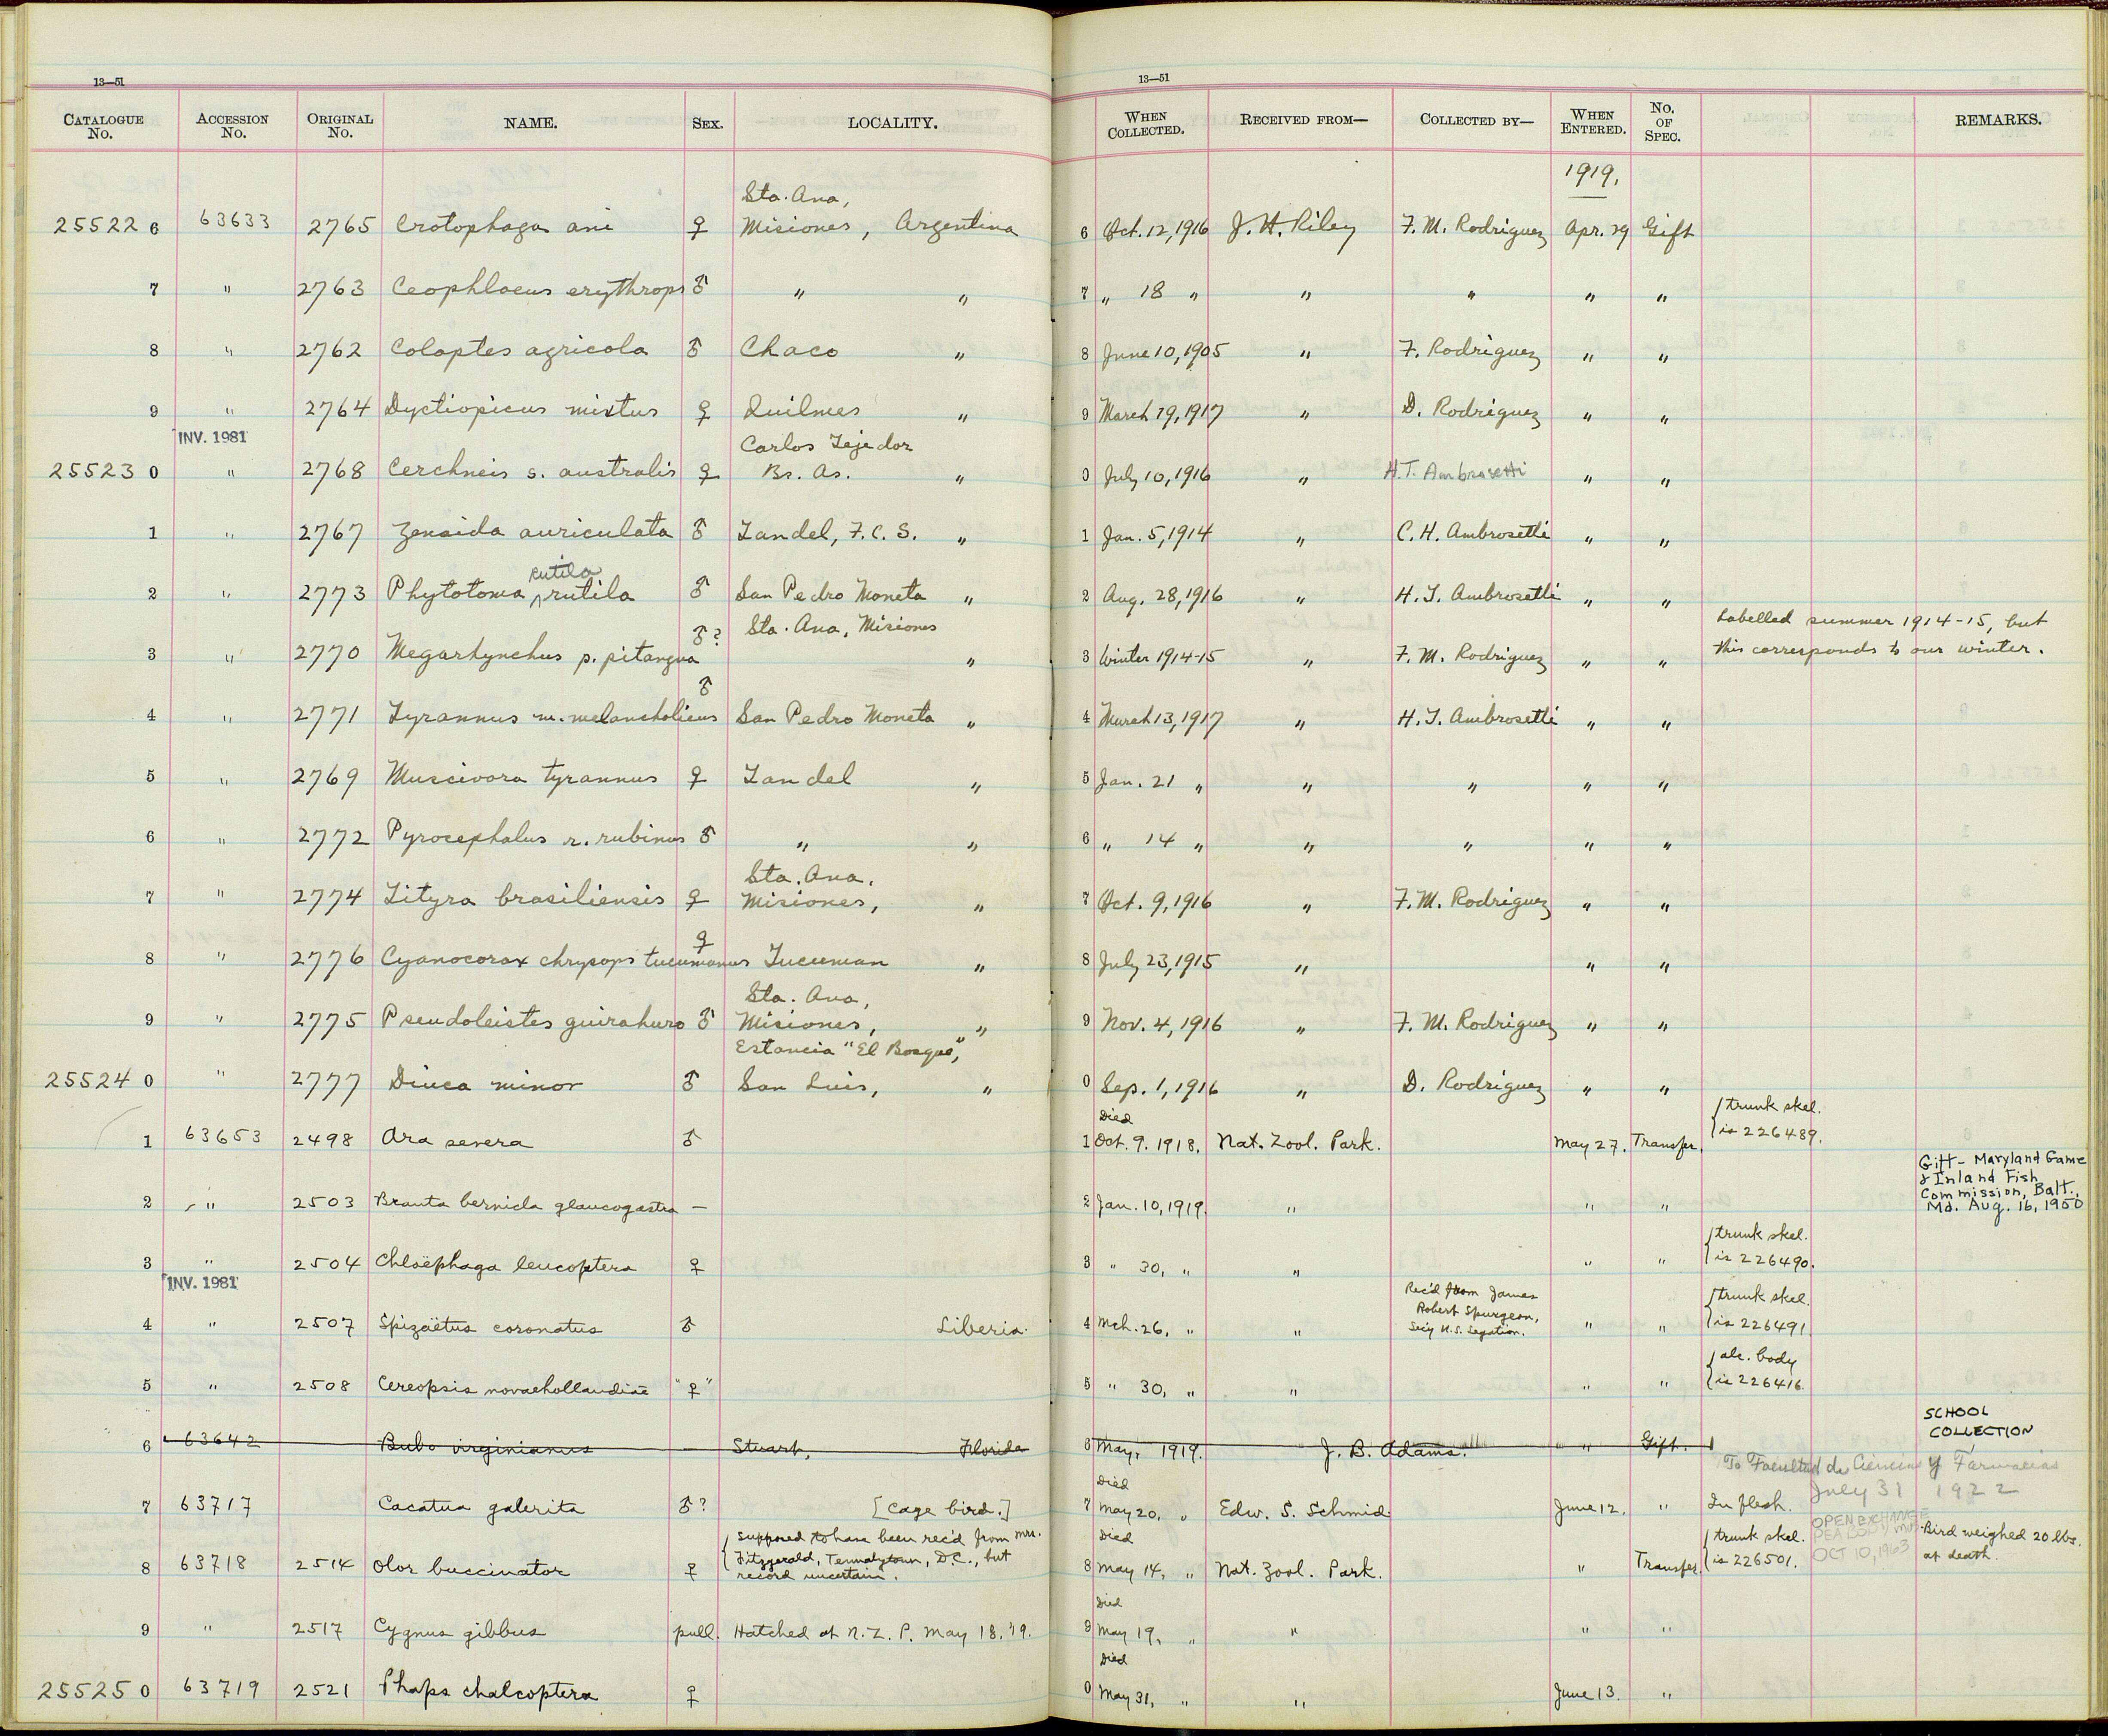 13—51
13—51
CATALOGUE No. ACCESSION No. ORIGINAL No. NAME. SEX. LOCALITY. WHEN COLLECTED. RECEIVED FROM— COLLECTED BY— WHEN ENTERED. No. OF SPEC. REMARKS.
1919.
Sta. Ana,
25522 6 63633 2765 Crotophaga ani ♀ Misiones, Argentina 6 Oct. 12, 1916 J. H. Riley F. M. Rodriguez Apr. 29 Gift
7 " 2763 Ceophloeus erythrops ♂ " " 7 " 18 " " " " "
8 " 2762 Colaptes agricola ♂ Chaco " 8 June 10, 1905 " F. Rodriguez " "
9 " 2764 Dyctiopicus mixtus ♀ Quilmes " 9 March 29, 1917 " D. Rodriguez " "
INV. 1981 Carlos Tejedor
25523 0 " 2768 Cerchneis s. australis ♀ Bs. As. " 0 July 10, 1916 " H.T. Ambrosetti " "
1 " 2767 Zenaida auriculata ♂ Zandel, F. C. S. " 1 Jan. 5, 1914 " C. H. Ambrosetti " "
rutila
2 " 2773 Phytotoma rutila ♂ San Pedro Moneta " 2 Aug. 28, 1916 " H. T. Ambrosetti " "
♂? Sta. Ana, Misiones Labelled summer 1914-15, but
3 " 2770 Megarhynchus p. pitangua " 3 Winter 1914-15 " F. M. Rodriguez " " this corresponds to our winter.
♂
4 " 2771 Tyrannus m. melancholicus San Pedro Moneta " 4 March 13, 1917 " H. T. Ambrosetti " "
5 " 2769 Muscivora tyrannus ♀ Zandel " 5 Jan. 21 " " " " "
6 " 2772 Pyrocephalus r. rubinus ♂ " " 6 " 14 " " " " "
Sta. Ana.
7 " 2774 Tityra brasiliensis ♀ Misiones, " 7 Oct. 9, 1916 " F. M. Rodriguez " "
♀
8 " 2776 Cyanocorax chrysops tucumanus Tucuman " 8 July 23, 1915 " " "
Sta. Ana,
9 " 2775 Pseudoleistes guirahuro ♂ Misiones, " 9 Nov. 4, 1916 " F. M. Rodriguez " "
Estancia "El Bosque",
25524 0 " 2777 Diuca minor ♂ San Luis, " 0 Sep. 1, 1916 " D. Rodriguez " "
Died trunk skel.
1 63653 2498 Ara severa ♂ 1 Oct. 9. 1918. Nat. Zool. Park. May 27. Transfer. is 226489.
Gift - Maryland Game
& Inland Fish
Commission, Balt.,
Md. Aug. 16, 1950
2 " 2503 Branta bernicla glaucogastra — 2 Jan. 10, 1919. " " "
trunk skel.
3 " 2504 Chloëphaga leucoptera ♀ 3 " 30, " " " " is 226490.
INV. 1981
Rec'd from James
Robert Spurgeon,
Sec'y U.S. Legation.
trunk skel.
4 " 2507 Spizaëtus coronatus ♂ Liberia. 4 Mch. 26, " " " " is 226491
alc. body
5 " 2508 Cereopsis novaehollandiae "♀" 5 " 30, " " " " is 226416.
SCHOOL
COLLECTION
6 63642 Bubo virginianus Stuart, Florida 6 May, 1919. J. B. Adams. " Gift.
To Facultad de Ciencias y Farmacias
July 31 1922
Died
7 63717 Cacatua galerita ♂? [Cage bird.] 7 May 20, " Edw. S. Schmid. June 12. " In flesh.
OPEN EXCHANGE
PEABODY MUS
OCT 10, 1963
Supposed to have been rec'd from Mrs.
Fitzgerald, Tennalytown, D.C., but
record uncertain.
Died trunk skel. Bird weighed 20 lbs.
8 63718 2514 Olor buccinator ♀ 8 May 14, " Nat. Zool. Park. " Transfer. is 226501. at death.
Died
9 " 2517 Cygnus gibbus pull. Hatched at N. Z. P. May 18, '19. 9 May 19, " " " "
Died
25525 0 63719 2521 Phaps chalcoptera ♀ 0 May 31, " " June 13. "